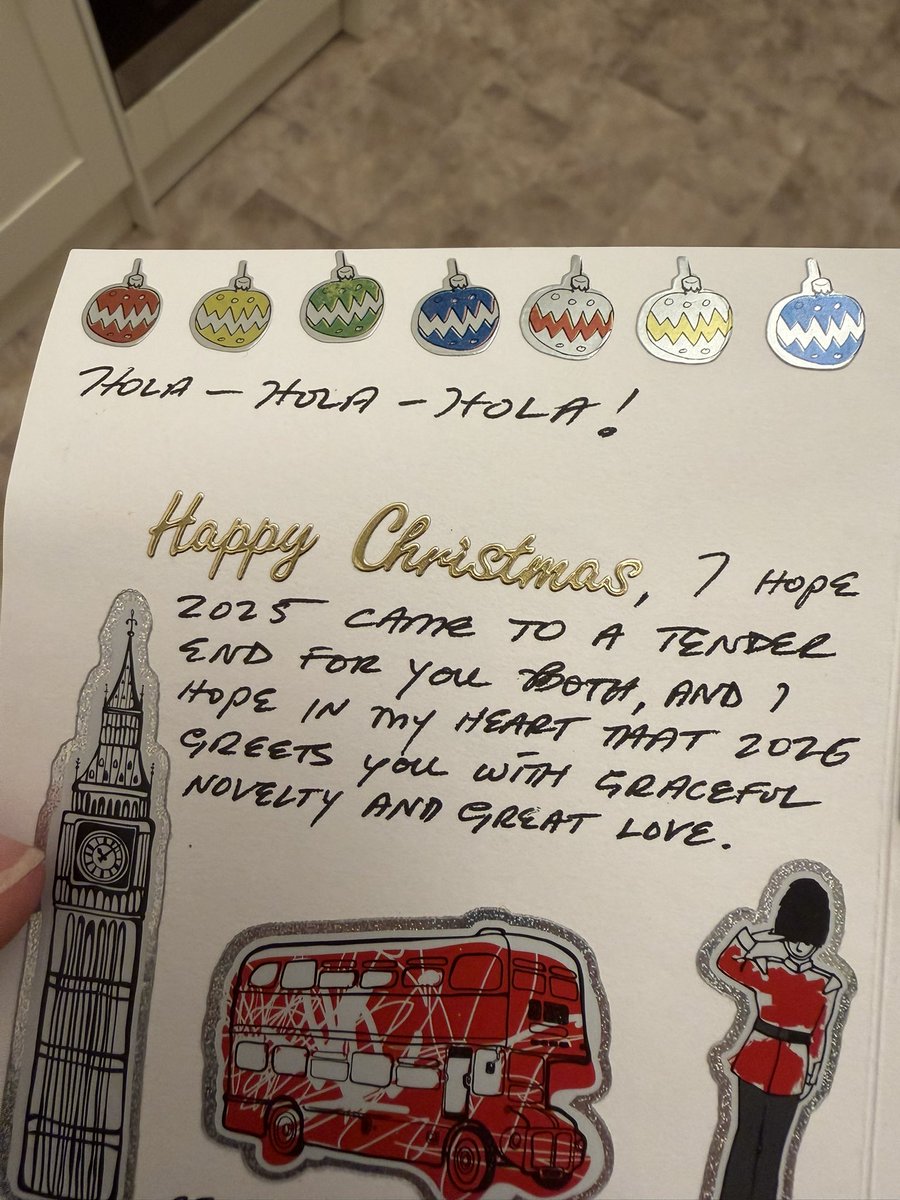 HOLA - HOLA - HOLA!
Happy Christmas, I HOPE
2025 CAME TO A TENDER
END FOR YOU BOTH, AND I
HOPE IN MY HEART THAT 2026
GREETS YOU WITH GRACEFUL
NOVELTY AND GREAT LOVE.